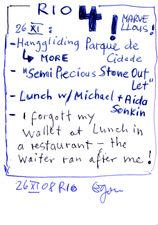 RIO 4!
MARVELLOUS!
26 XI:
- Hanggliding Parque de
Cidade
↳ MORE
- "Semi Precious Stone Out
Let"
- Lunch w/ Michael + Aida
Sonkin
- I forgott my
wallet at Lunch in
a restaurant - the
waiter ran after me!
26 XI 08 RIO